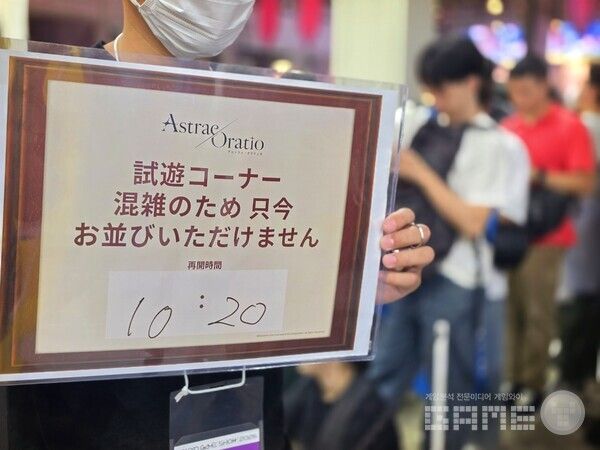 Astrae Oratio
試遊コーナー
混雑のため 只今
お並びいただけません
再開時間
10:20
게임분석 전문미디어 게임와이
GAME Y